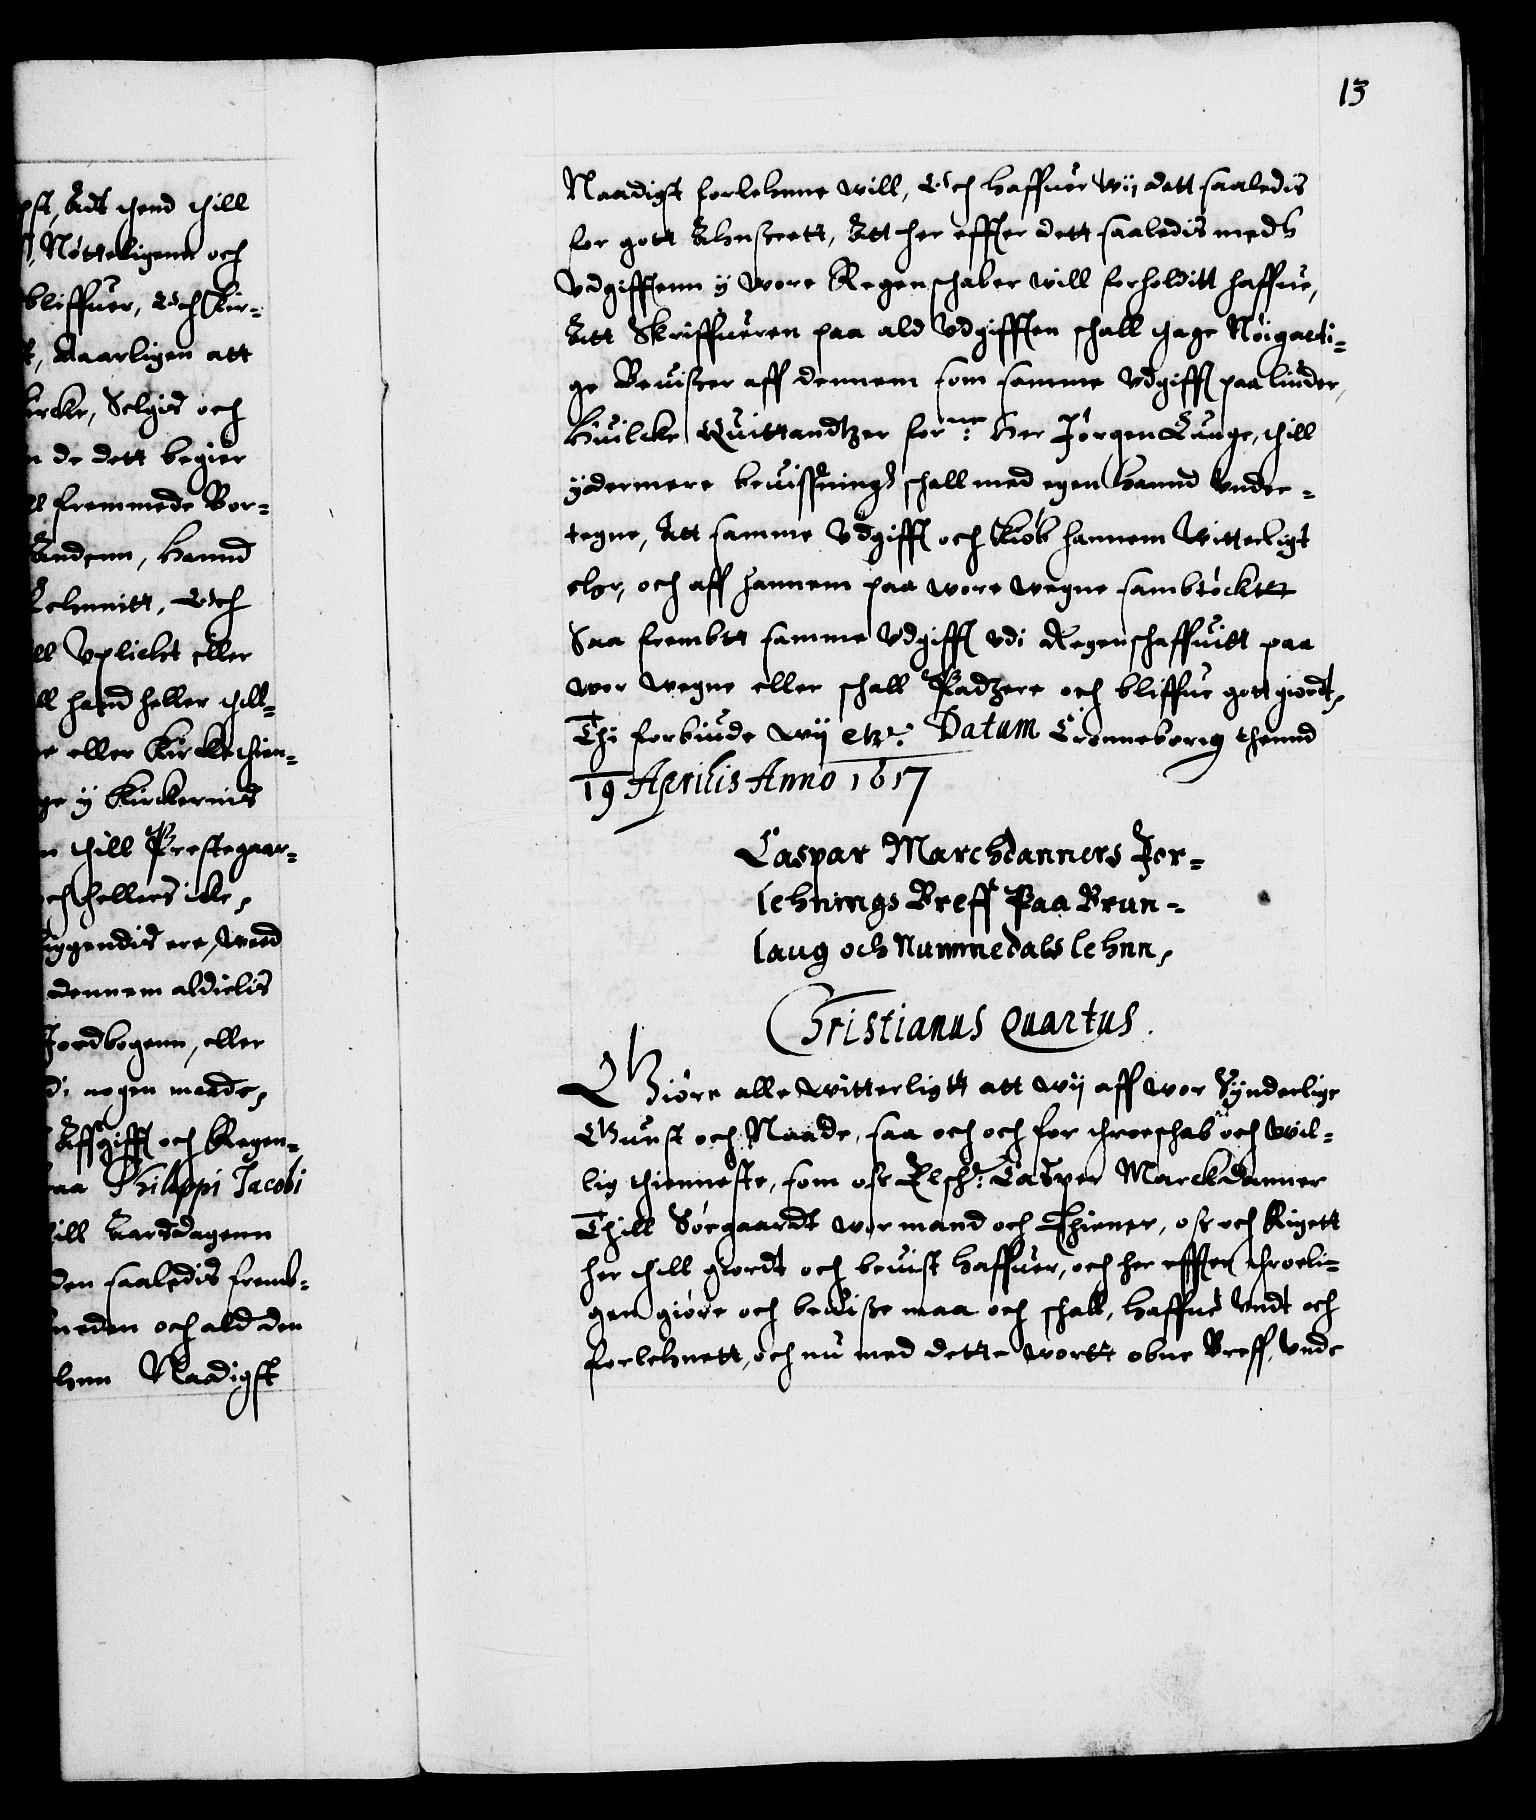 pst, Adt thend thill
Nötteligenn och
bliffuer, Och Kir-
t, Aaarligen att
kircke, Selgis och
n de dett begier
ll fremmede Bor-
Andenn, Hannd
Lehnnitt, Och
ll Vplicht eller
ll hand heller thill-
re eller Kircke thien-
ge ij Kirckernis
n thill Prestegaar-
och hellers icke,
liggendis ere, wed
dennem aldielis
Jordbogenn, eller
di nogen maade,
Affgifft och Regen-
paa Philippi Jacobi
thill Aarsdagenn
den saaledis fremb-
neden och ald den
Lehnn Naadigst
13
Naadigst forlehnne will, Och haffuer wij dett saaledis
for gott Ahnseett, Att her effther dett saaledis medh
Vdgifftenn ij wore Regenschaber will forholditt haffue,
Att Skriffueren paa ald Vdgifften schall thage Nöigacti-
ge Beuiszer aff dennem som samme Vdgifft paalinder,
Huilcke Quittandtzer forne: Her Jörgen Lunge, thill
ÿdermere beuiszning, schall med egen Hannd vnder-
tegne, Att samme Vdgifft och Kiöb hannem Witterligt
ehr, och aff hannem paa wore wegne sambtöcktt
Saa frembtt samme Vdgifft vdi Regenschaffuitt paa
wor wegne eller schall Padzere och bliffue gottgiordt,
Thi forbiude wij etz: Datum Cronneborig thennd
19 Aprilis Anno 1617
Caspar Marchdanners For-
lehnings Breff Paa Brun-
laug och Nummedals lehnn,
Christianus Quartus.
Giöre alle witterligtt att wij aff wor Synderlige
Gunst och Naade, saa och och for throeschab och wil-
lig thienneste, som osz Elsch: Casper Marckdanner
Thill Söegaardt wor mand och Thiener, osz och Rigett
her thill giordt och beuist haffuer, och her effther throeli-
gen giöre och beuisze maa och schall, haffue Vndt och
forlehnett, och nu med dette wortt obne Breff, Vnde